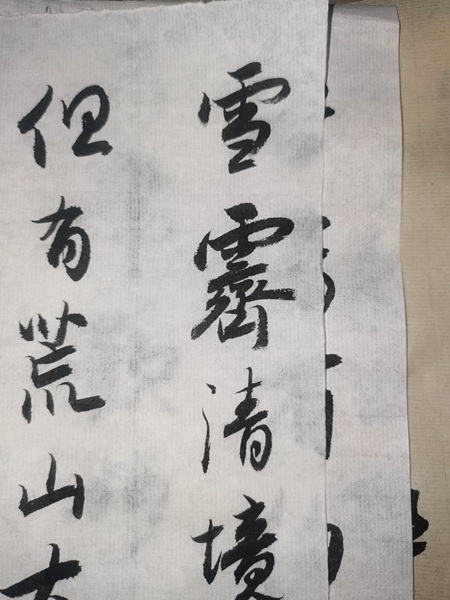 雪霽清境
但有荒山大